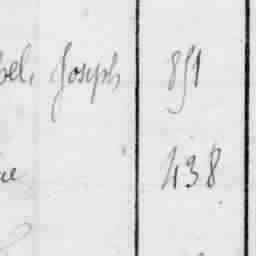 bel, Joseph 851
438